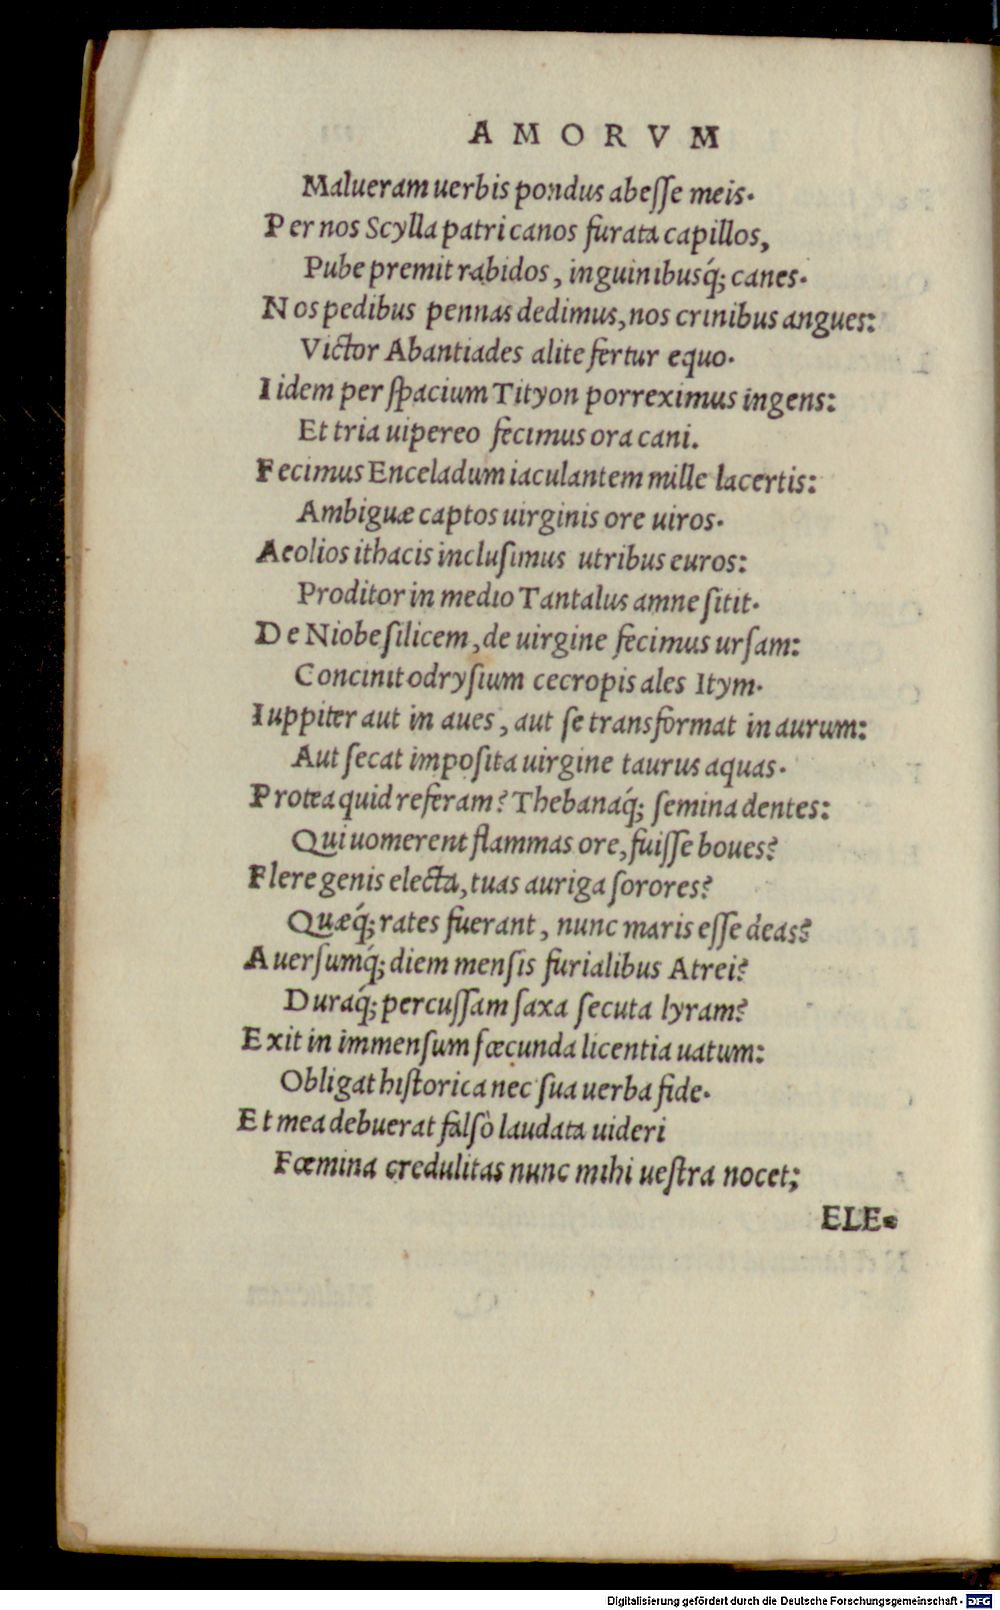 AMORVM
Malueram uerbis pondus abesse meis.
Per nos Scylla patri canos furata capillos,
Pube premit rabidos, inguinibusq́; canes.
Nos pedibus pennas dedimus, nos crinibus angues:
Victor Abantiades alite fertur equo.
Iidem per spacium Tityon porreximus ingens:
Et tria uipereo fecimus ora cani.
Fecimus Enceladum iaculantem mille lacertis:
Ambiguæ captos uirginis ore uiros.
Aeolios ithacis inclusimus utribus euros:
Proditor in medio Tantalus amne sitit.
De Niobe silicem, de uirgine fecimus ursam:
Concinit odrysium cecropis ales Itym.
Iuppiter aut in aues, aut se transformat in aurum:
Aut secat imposita uirgine taurus aquas.
Protea quid referam? Thebanaq́; semina dentes:
Qui uomerent flammas ore, fuisse boues?
Flere genis electa, tuas auriga sorores?
Quæq́; rates fuerant, nunc maris esse deas?
Auersumq́; diem mensis furialibus Atrei?
Duraq́; percussam saxa secuta lyram?
Exit in immensum fœcunda licentia uatum:
Obligat historica nec sua uerba fide.
Et mea debuerat falsò laudata uideri
Fœmina credulitas nunc mihi uestra nocet;
ELE-
Digitalisierung gefördert durch die Deutsche Forschungsgemeinschaft - DFG